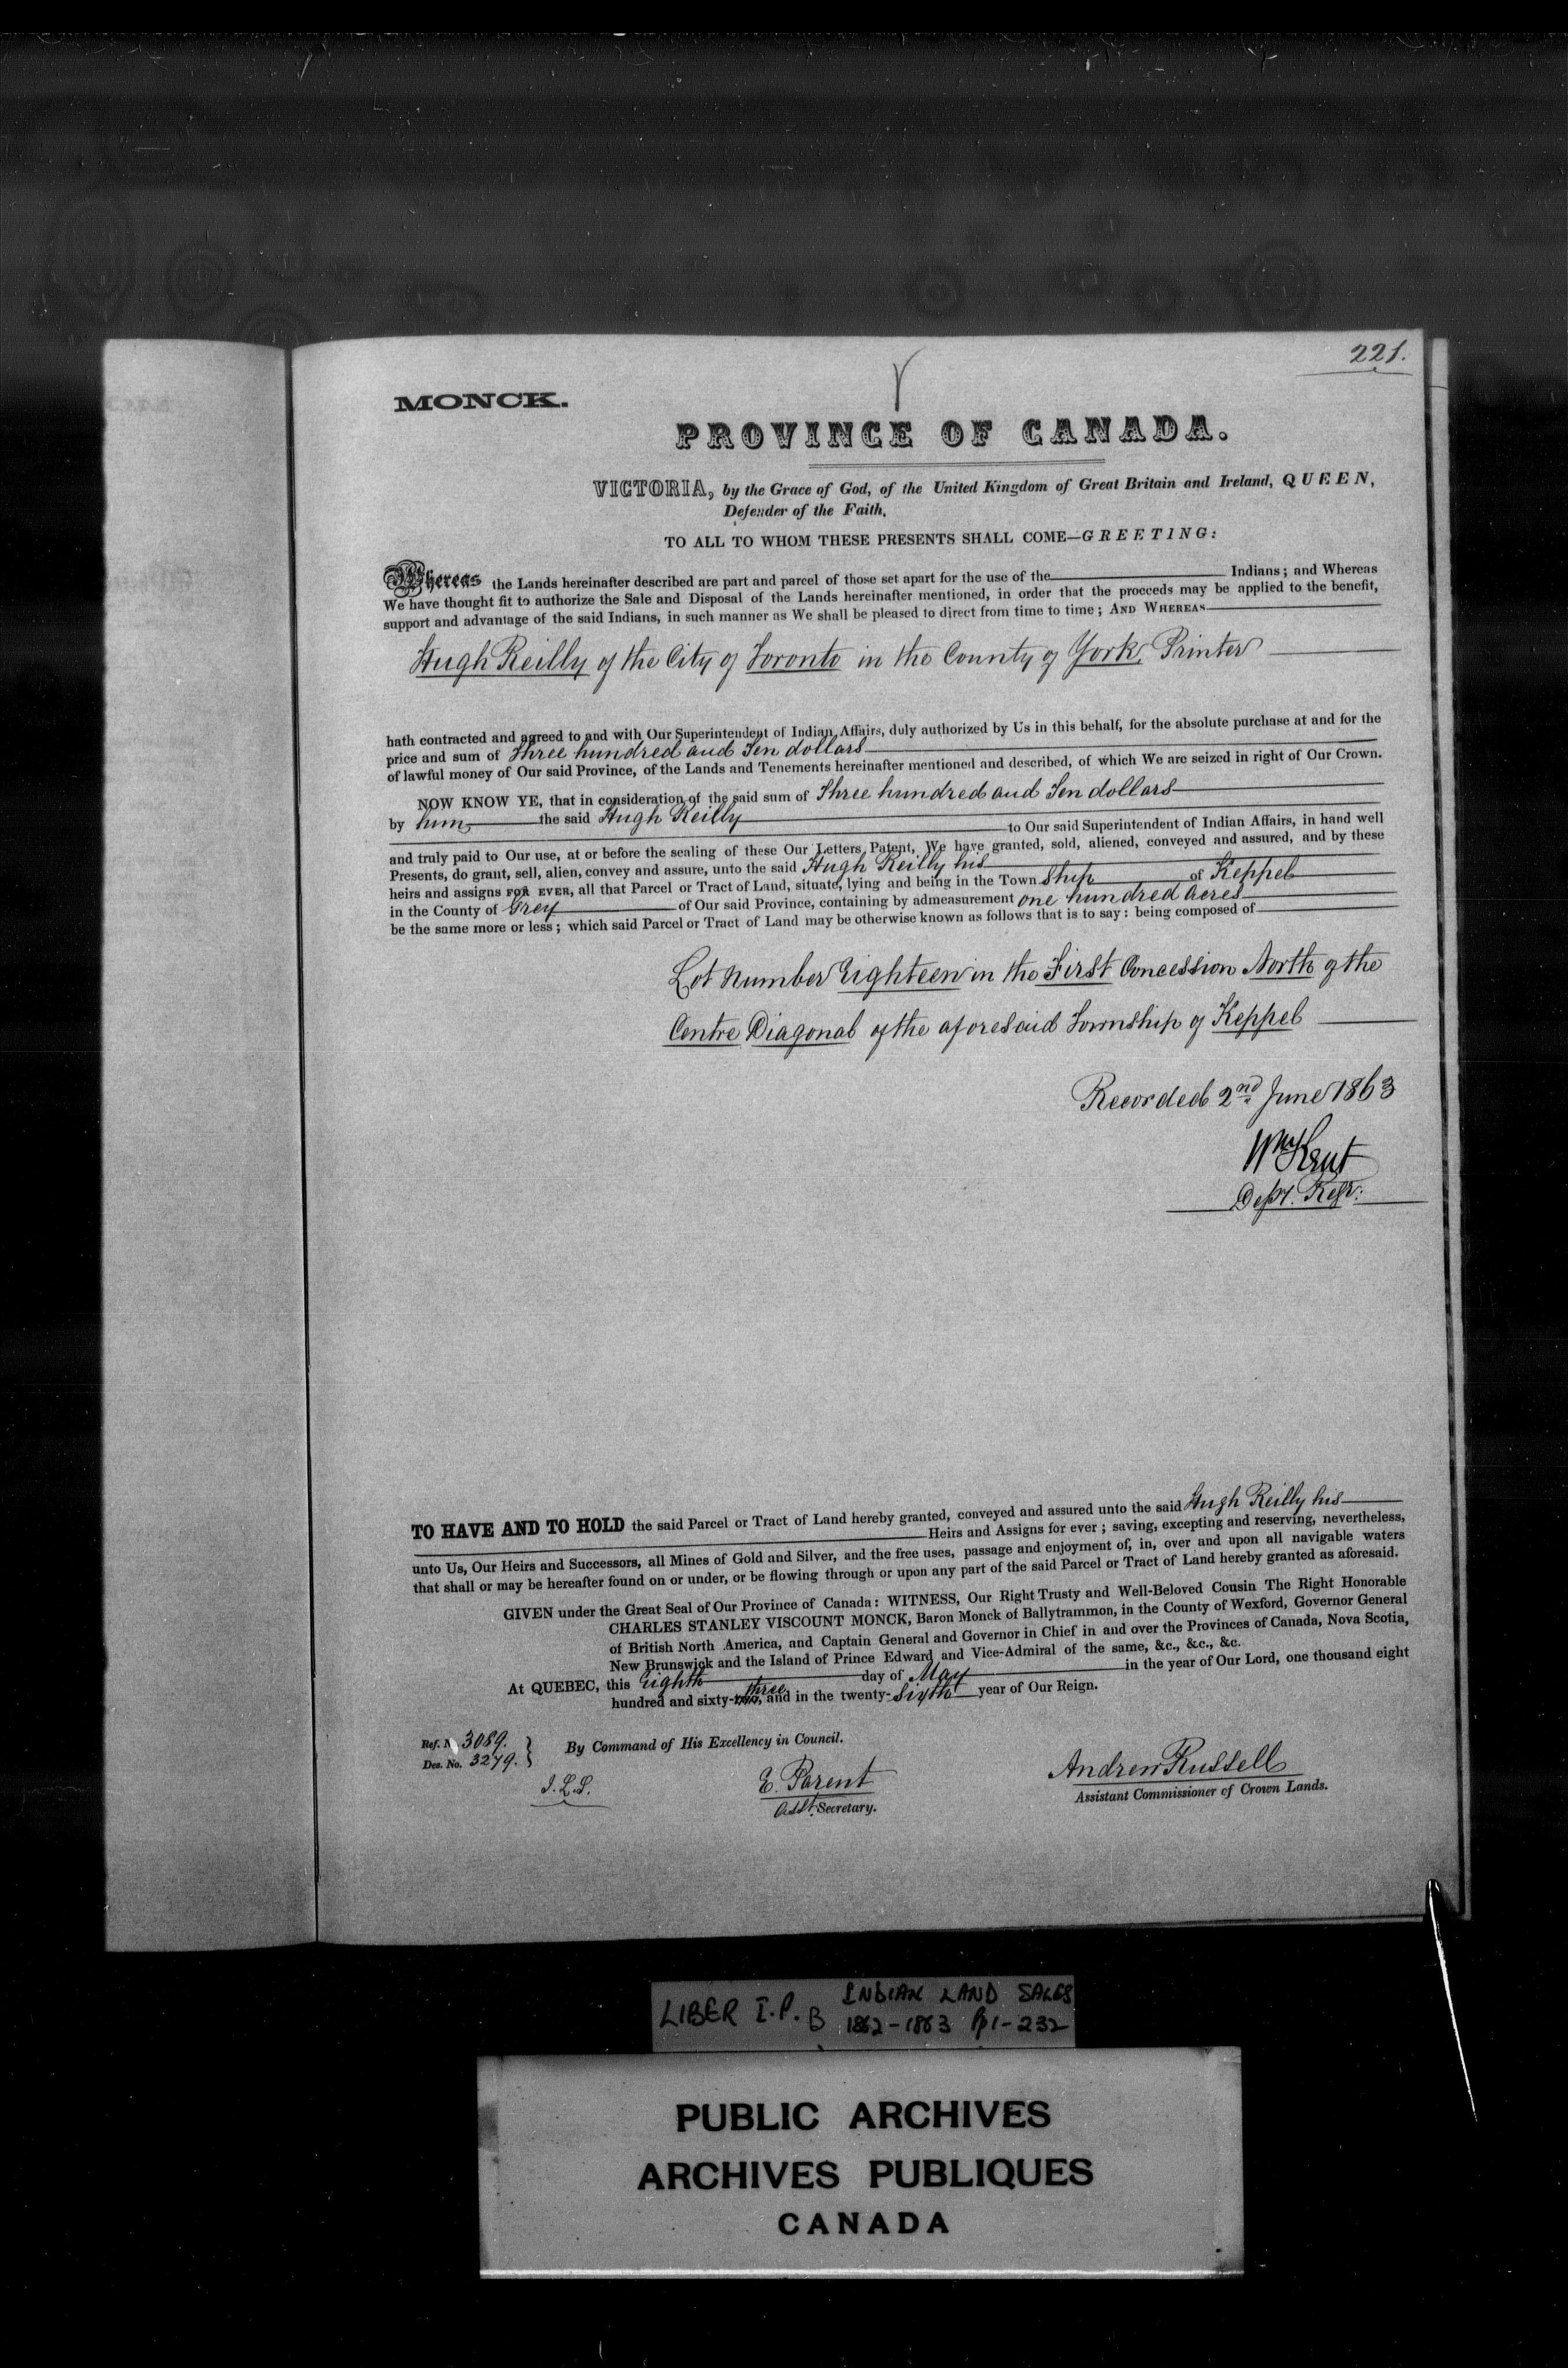 221.
MONCK.
PROVINCE OF CANADA.
VICTORIA, by the Grace of God, of the United Kingdom of Great Britain and Ireland, QUEEN,
Defender of the Faith,
TO ALL TO WHOM THESE PRESENTS SHALL COME—GREETING:
Whereas the Lands hereinafter described are part and parcel of those set apart for the use of the Indians; and Whereas
We have thought fit to authorize the Sale and Disposal of the Lands hereinafter mentioned, in order that the proceeds may be applied to the benefit,
support and advantage of the said Indians, in such manner as We shall be pleased to direct from time to time; AND WHEREAS
Hugh Reilly of the City of Toronto in the County of York, Printer
hath contracted and agreed to and with Our Superintendent of Indian Affairs, duly authorized by Us in this behalf, for the absolute purchase at and for the
price and sum of Three hundred and Ten dollars
of lawful money of Our said Province, of the Lands and Tenements hereinafter mentioned and described, of which We are seized in right of Our Crown.
NOW KNOW YE, that in consideration of the said sum of Three hundred and Ten dollars
by him the said Hugh Reilly
to Our said Superintendent of Indian Affairs, in hand well
and truly paid to Our use, at or before the sealing of these Our Letters Patent, We have granted, sold, aliened, conveyed and assured, and by these
Presents, do grant, sell, alien, convey and assure, unto the said Hugh Reilly his
heirs and assigns FOR EVER, all that Parcel or Tract of Land, situate, lying and being in the Town ship of Keppel
in the County of Grey of Our said Province, containing by admeasurement one hundred acres
be the same more or less; which said Parcel or Tract of Land may be otherwise known as follows that is to say: being composed of
Lot Number Eighteen in the First Concession North of the
Centre Diagonal of the aforesaid Township of Keppel
Recorded 2nd June 1863
Wm Kent
Depy. Regr.
TO HAVE AND TO HOLD the said Parcel or Tract of Land hereby granted, conveyed and assured unto the said Hugh Reilly his
Heirs and Assigns for ever; saving, excepting and reserving, nevertheless,
unto Us, Our Heirs and Successors, all Mines of Gold and Silver, and the free uses, passage and enjoyment of, in, over and upon all navigable waters
that shall or may be hereafter found on or under, or be flowing through or upon any part of the said Parcel or Tract of Land hereby granted as aforesaid.
GIVEN under the Great Seal of Our Province of Canada: WITNESS, Our Right Trusty and Well-Beloved Cousin The Right Honorable
CHARLES STANLEY VISCOUNT MONCK, Baron Monck of Ballytrammon, in the County of Wexford, Governor General
of British North America, and Captain General and Governor in Chief in and over the Provinces of Canada, Nova Scotia,
New Brunswick and the Island of Prince Edward and Vice-Admiral of the same, &c., &c., &c.
At QUEBEC, this Eighth day of May in the year of Our Lord, one thousand eight
hundred and sixty-two, three and in the twenty-Sixth year of Our Reign.
Ref. N 3089.
Des. No. 3279.
By Command of His Excellency in Council.
J.L.S.
E. Parent
Asst. Secretary.
Andrew Russell
Assistant Commissioner of Crown Lands.
LIBER I.P. B INDIAN LAND SALES
1862-1863 Pp 1-232
PUBLIC ARCHIVES
ARCHIVES PUBLIQUES
CANADA